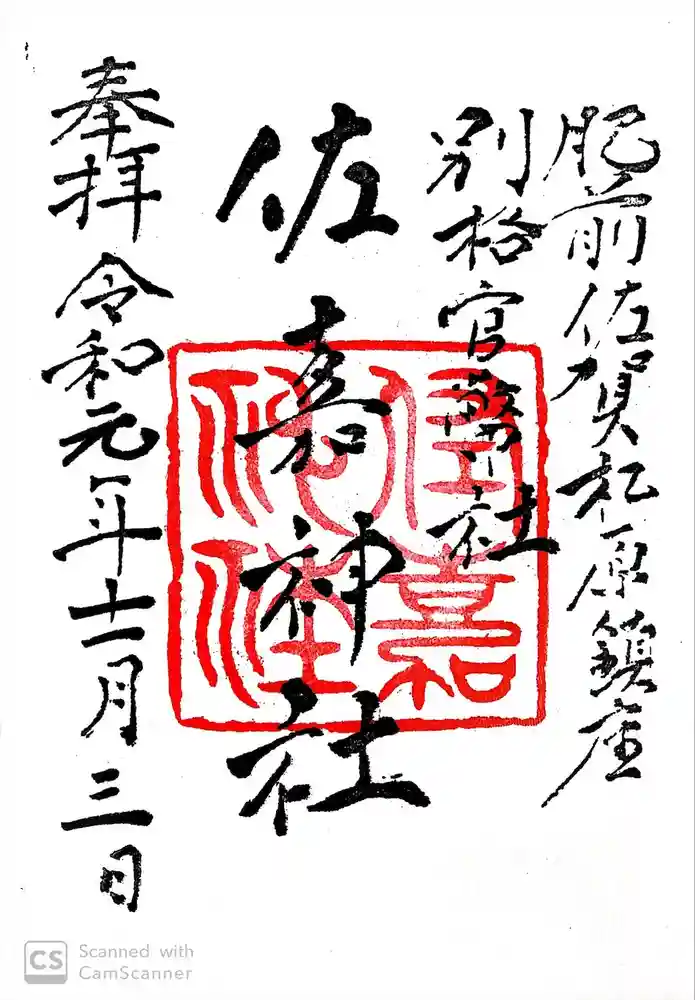 肥前佐賀松原鎮座
別格官幣社
佐嘉神社
奉拝 令和元年十一月三日
佐嘉神社
CS Scanned with
CamScanner